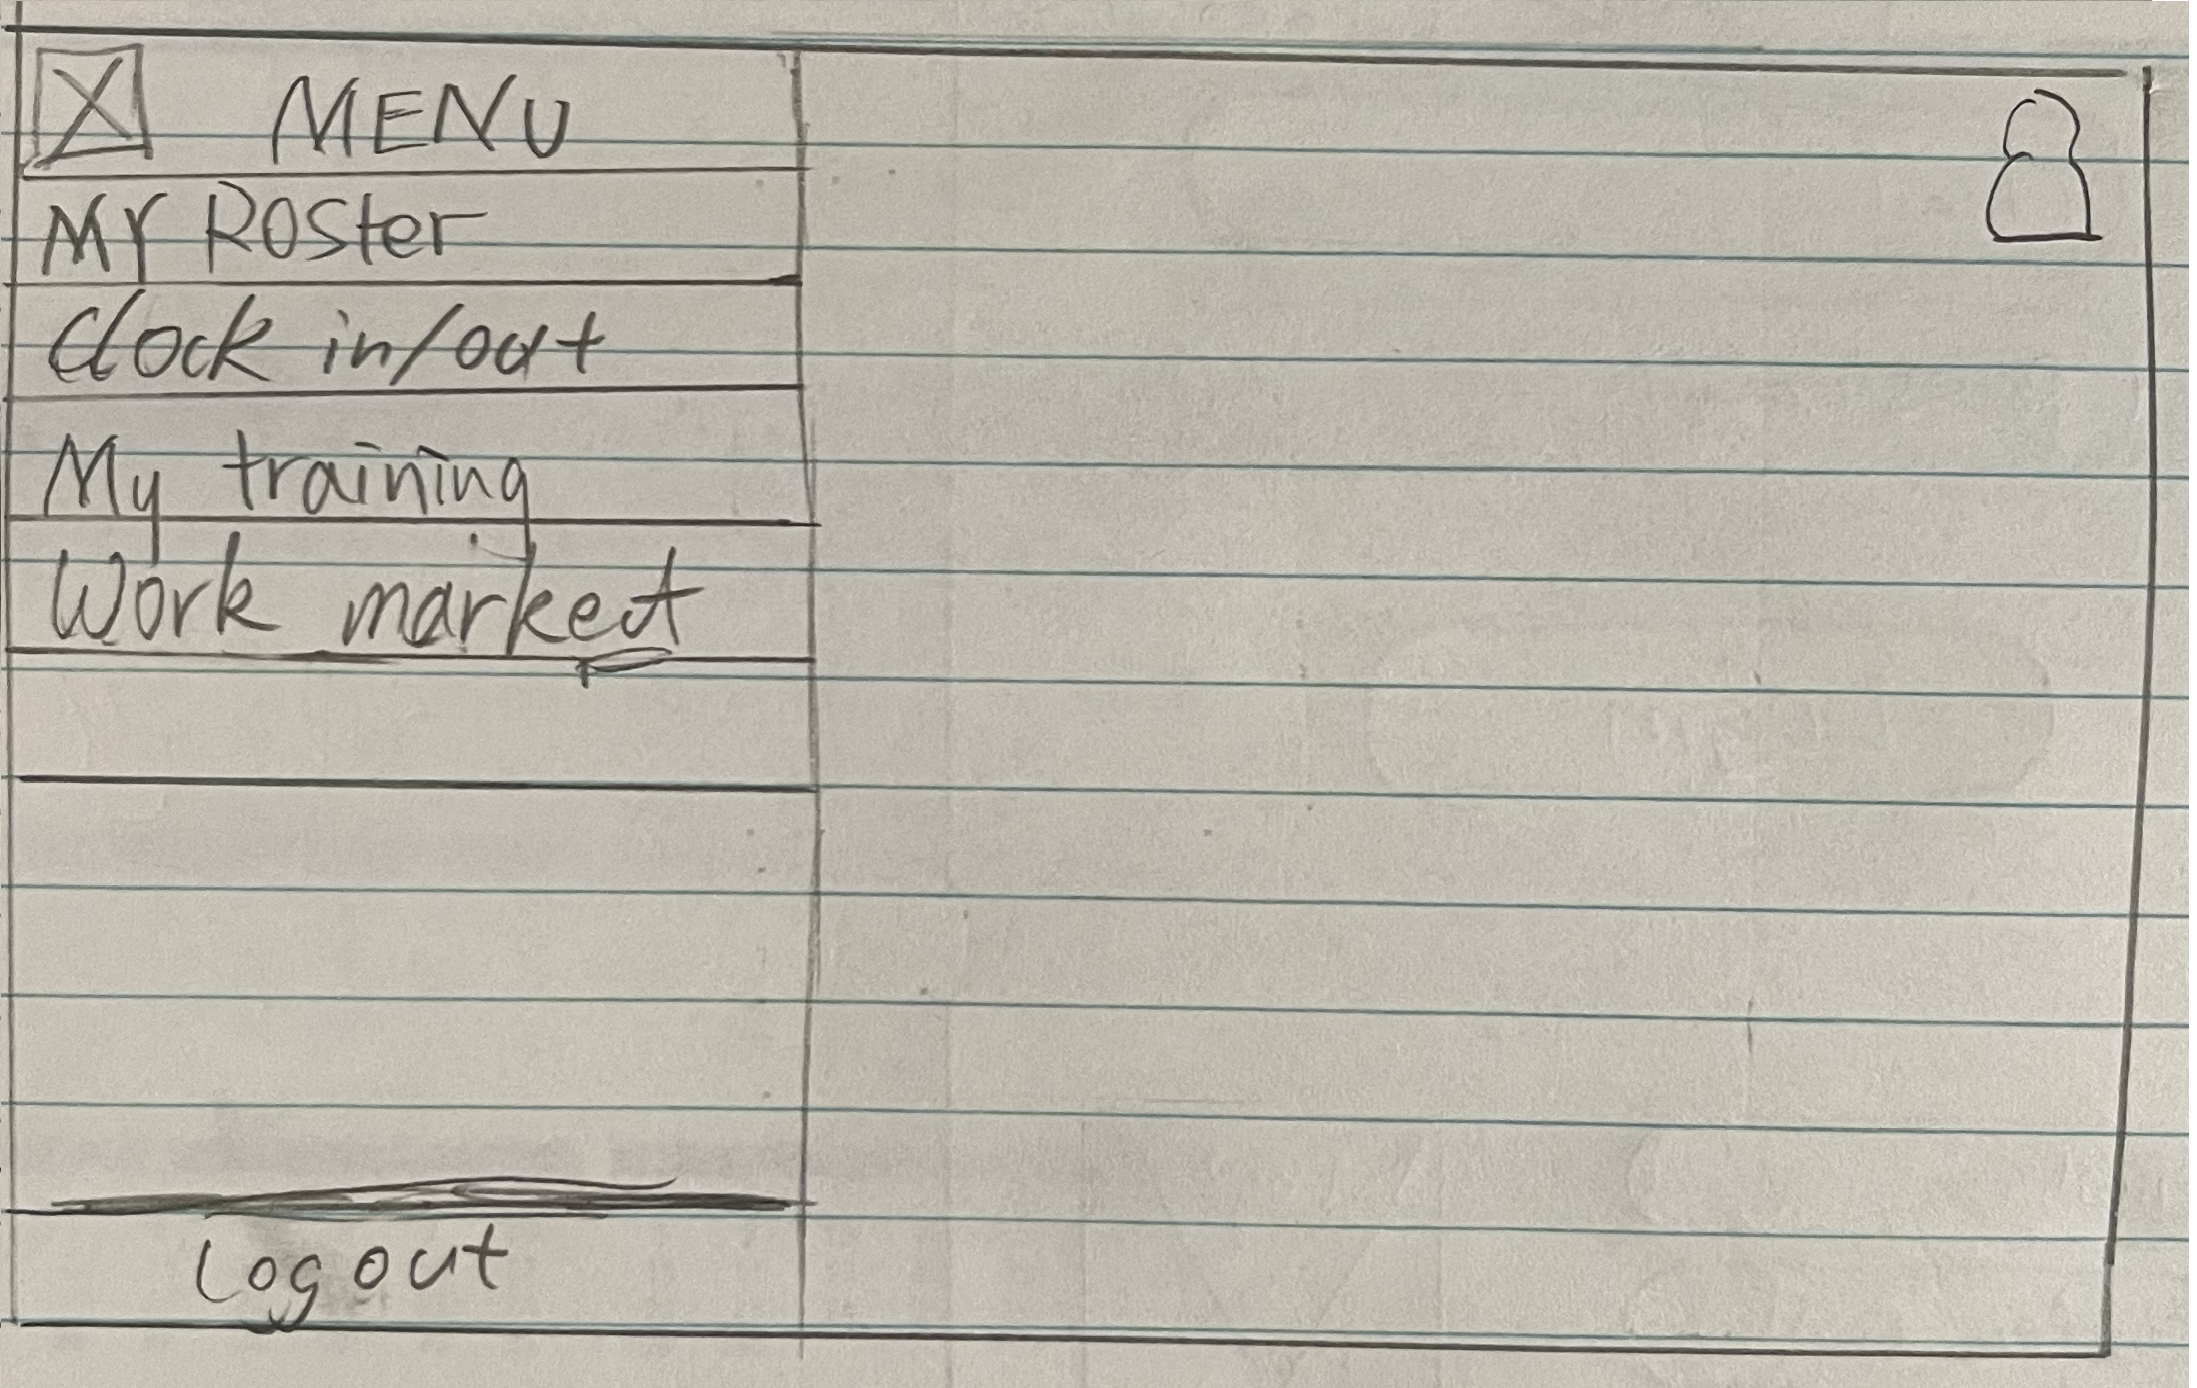 MENU
My Roster
Clock in/out
My training
Work market
Logout